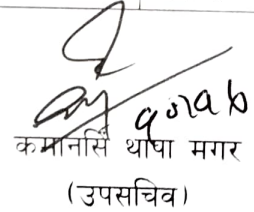 कमानसिं थापा मगर
(उपसचिव)